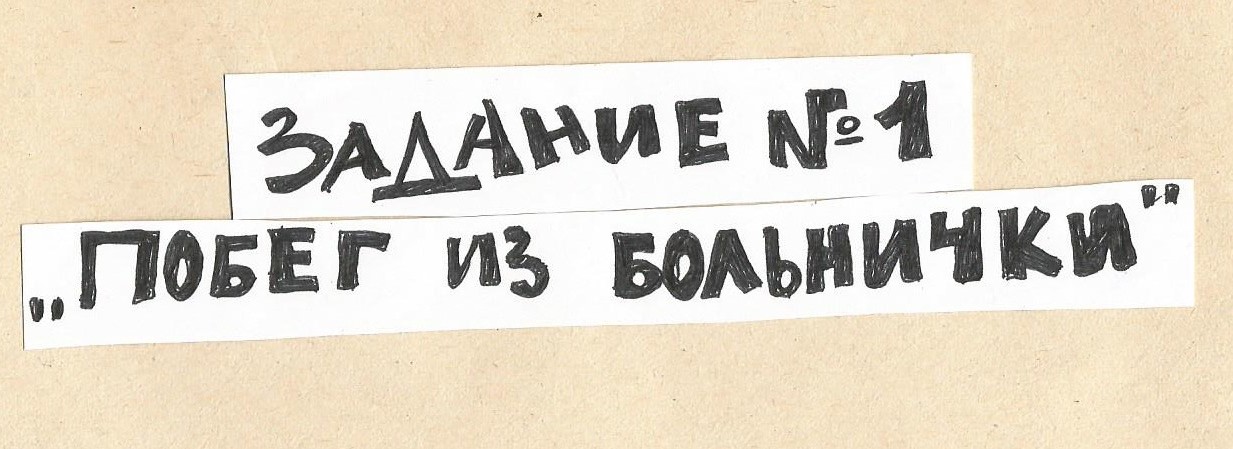 ЗАДАНИЕ №1
„ПОБЕГ ИЗ БОЛЬНИЧКИ"